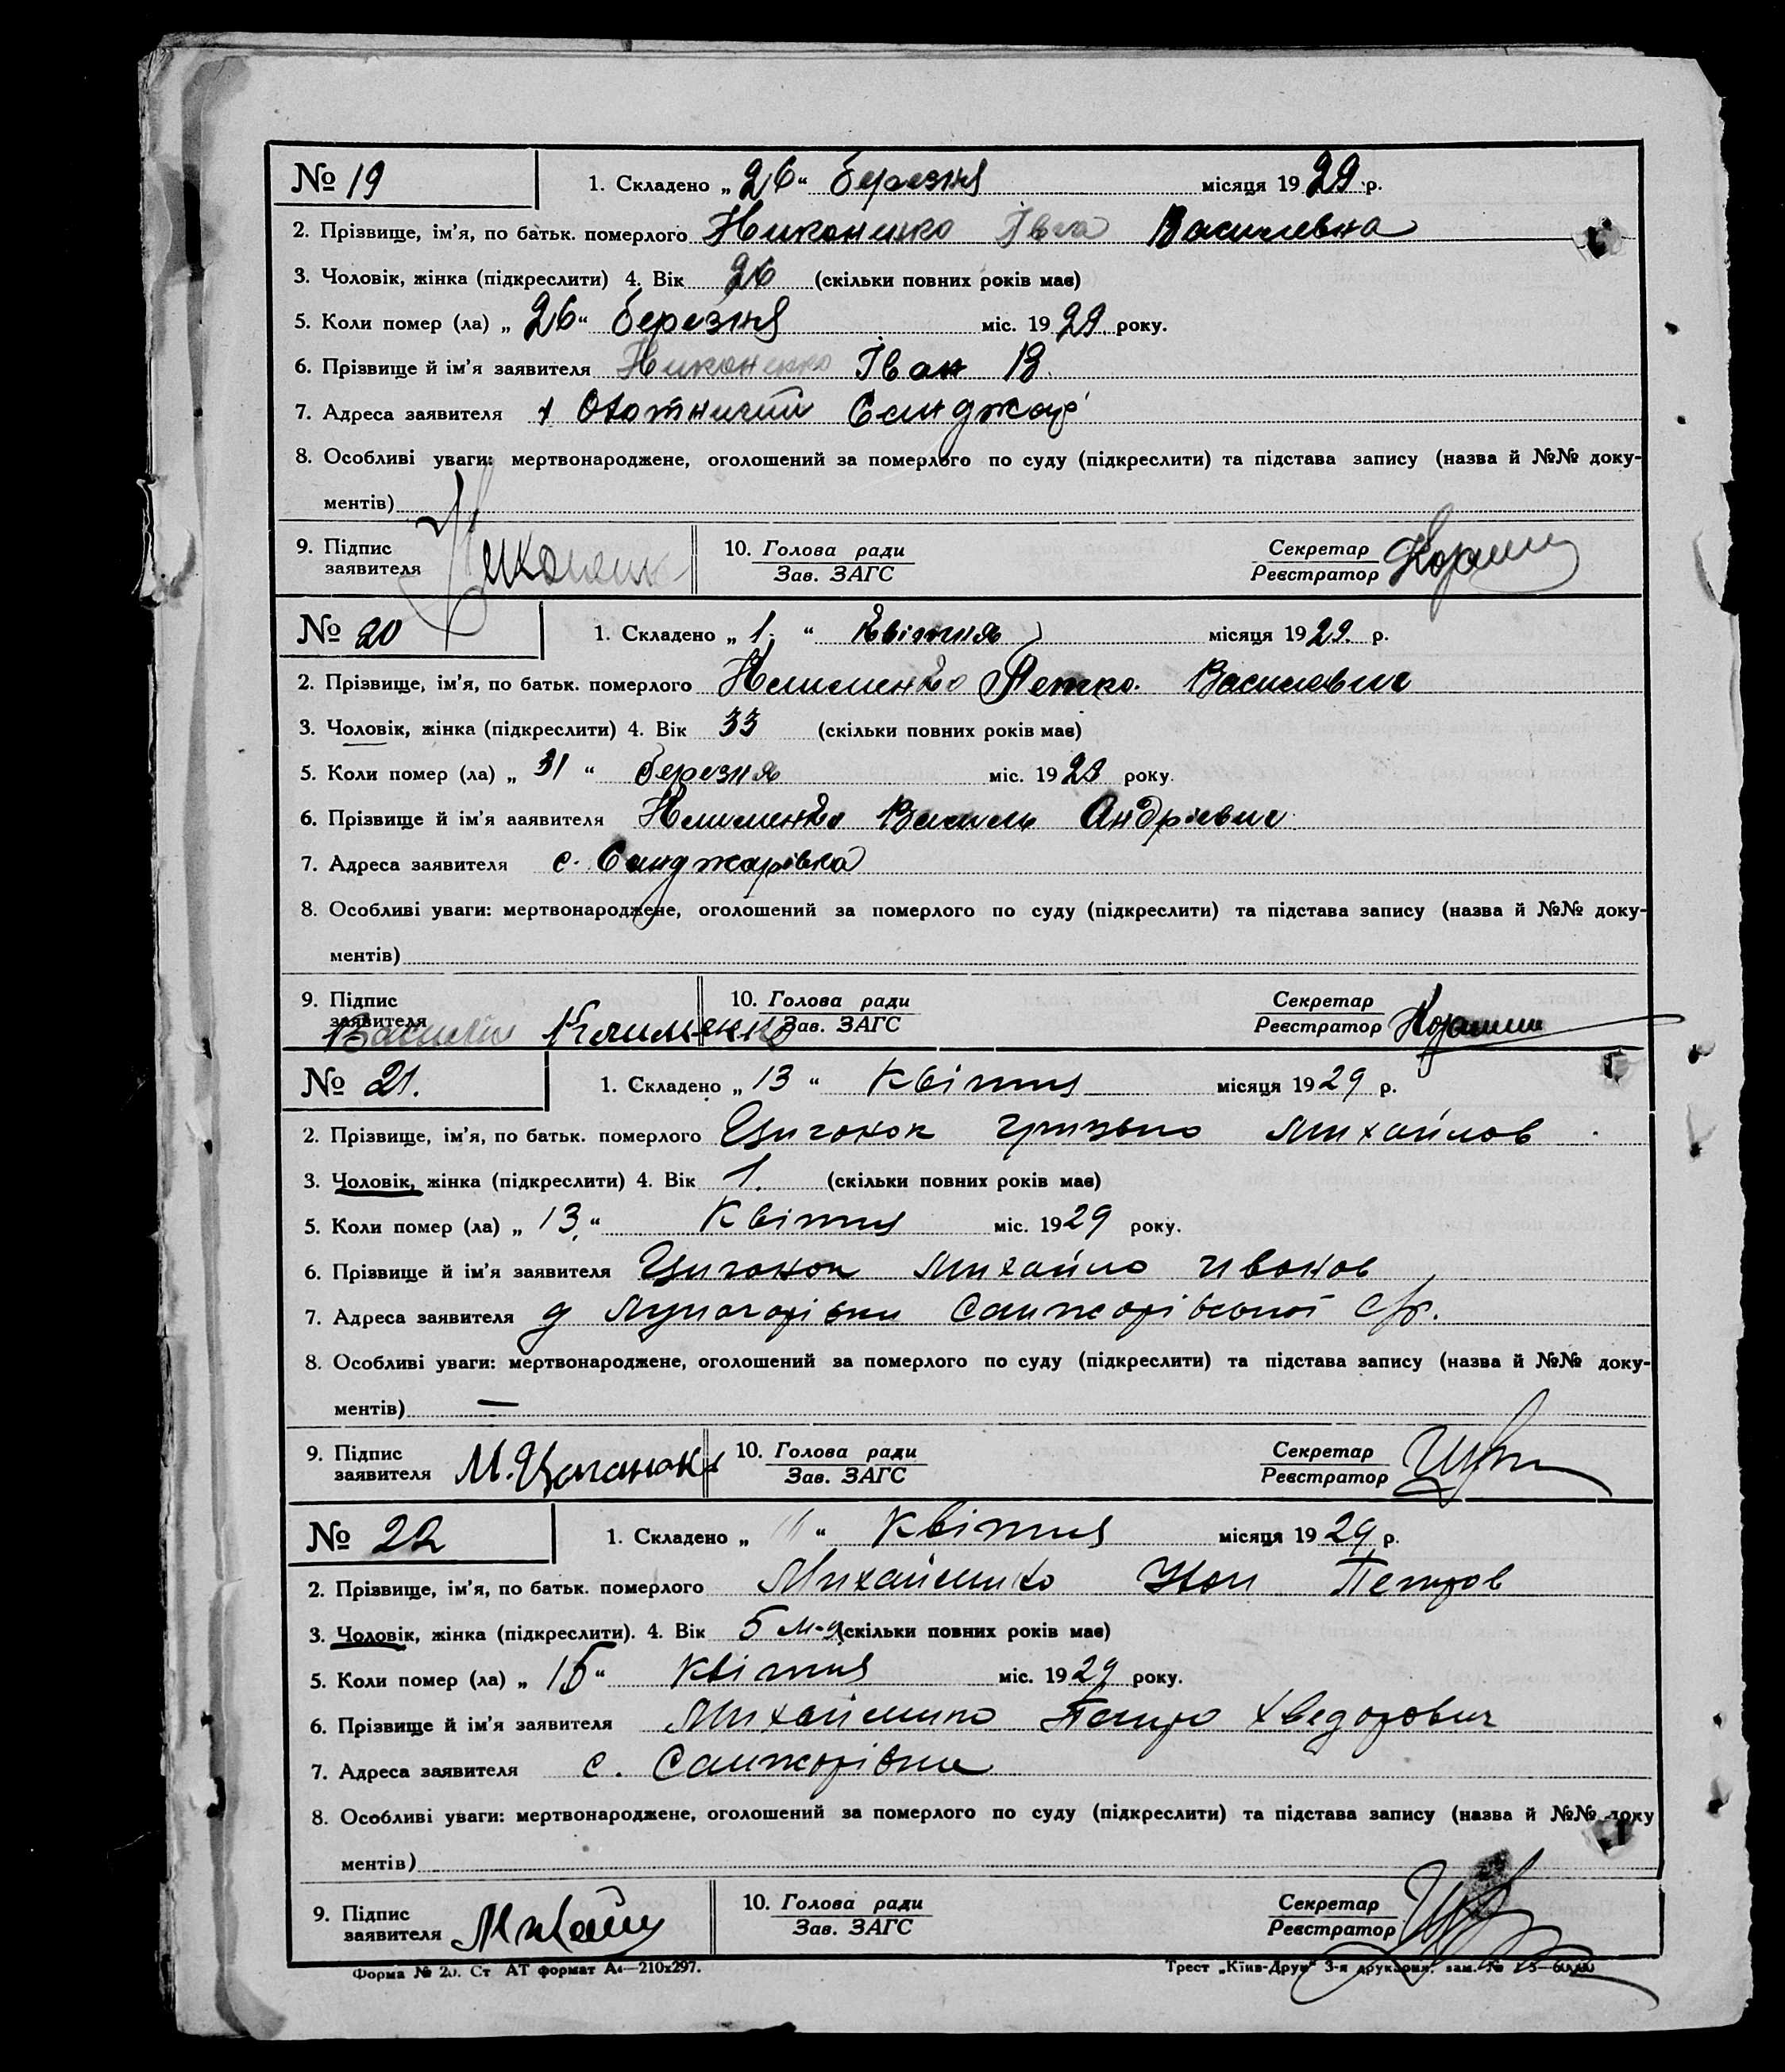 № 19 1. Складено „26“ березня місяця 1929 р.
2. Прізвище, ім'я, по батьк. померлого Никоненко Івга Василевна
3. Чоловік, жінка (підкреслити) 4. Вік 26 (скільки повних років має)
5. Коли помер (ла) „26“ березня міс. 1929 року.
6. Прізвище й ім'я заявителя Никоненко Іван В.
7. Адреса заявителя
8. Особливі уваги: мертвонароджене, оголошений за померлого по суду (підкреслити) та підстава запису (назва й №№ доку-
ментів)
9. Підпис заявителя 10. Голова ради Зав. ЗАГС Секретар Реєстратор
№ 20 1. Складено „1.“ Квітня місяця 1929. р.
2. Прізвище, ім'я, по батьк. померлого Клименко Петро. Василевич
3. Чоловік, жінка (підкреслити) 4. Вік 33 (скільки повних років має)
5. Коли помер (ла) „31“ березня міс. 1929 року.
6. Прізвище й ім'я заявителя Клименко Василь Андрієвич
7. Адреса заявителя с. Санджарівка
8. Особливі уваги: мертвонароджене, оголошений за померлого по суду (підкреслити) та підстава запису (назва й №№ доку-
ментів)
9. Підпис заявителя Василь Клименко 10. Голова ради Зав. ЗАГС Секретар Реєстратор
№ 21. 1. Складено „13“ Квітня місяця 1929 р.
2. Прізвище, ім'я, по батьк. померлого Циганок Михайлов
3. Чоловік, жінка (підкреслити) 4. Вік 1. (скільки повних років має)
5. Коли помер (ла) „13“ Квітня міс. 1929 року.
6. Прізвище й ім'я заявителя Циганок Михайло Иванов
7. Адреса заявителя Санжарівської с/р.
8. Особливі уваги: мертвонароджене, оголошений за померлого по суду (підкреслити) та підстава запису (назва й №№ доку-
ментів) —
9. Підпис заявителя М. Циганок 10. Голова ради Зав. ЗАГС Секретар Реєстратор
№ 22 1. Складено „ “ Квітня місяця 1929 р.
2. Прізвище, ім'я, по батьк. померлого Михайленко Петров
3. Чоловік, жінка (підкреслити). 4. Вік 5 м-ц (скільки повних років має)
5. Коли помер (ла) „15“ Квітня міс. 1929 року.
6. Прізвище й ім'я заявителя Михайленко Петро Хведорович
7. Адреса заявителя с. Санжарівка
8. Особливі уваги: мертвонароджене, оголошений за померлого по суду (підкреслити) та підстава запису (назва й №№ доку
ментів)
9. Підпис заявителя 10. Голова ради Зав. ЗАГС Секретар Реєстратор
Форма № 20. Ст АТ формат А4—210x297. Трест „Київ-Друк“ 3-я друкарня. зам. №